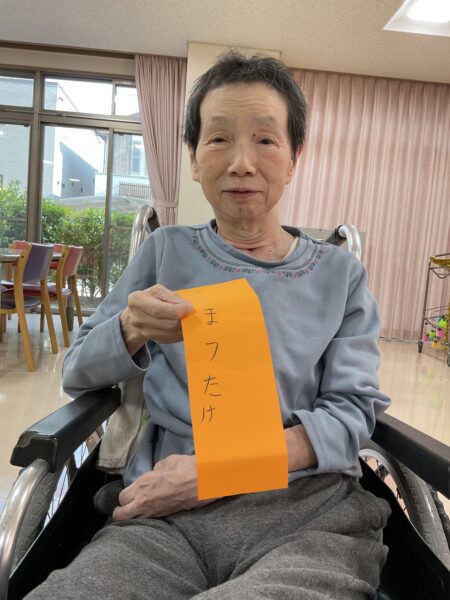 まつたけ